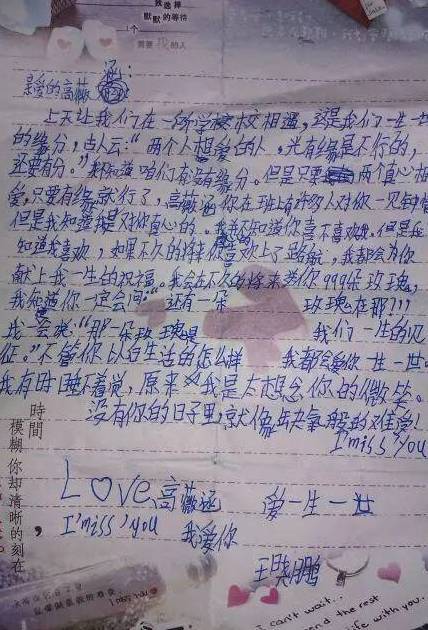 我选择
默默的等待
1个
需要 我的人
亲爱的高薇涵:
上天让我们在一所学校相遇，这是我们一生一世
的缘分，古人云：“两个人相爱的人，光有缘是不行的，
还要有分。”我不知道咱们有没有缘分。但是只要两个真心相
爱，只要有缘就行了，高薇涵你在班上有许多人对你一见钟情
但是我知道我是对你真心的。我不知道你喜不喜欢我。但是我
知道我喜欢，如果不久的将来你喜欢上了路航，我都会为你
献上我一生的祝福。我会在不久的将来為你999朵玫瑰，
我知道你一定会问“还有一朵 玫瑰在那???
我会说：“那一朵玫瑰是 我们一生的见
征。”不管你以白生活的怎么样 我都会爱你一生一世。
我有时睡不着觉，原来 我是太想念你的微笑。
没有你的日子里，就像缺氧般的难受！
I'miss'you
Love 高薇涵 爱一生一世
I'miss'you 我爱你
王晓鹏
時間
模糊，你却清晰的刻在
I miss you
I can't wait...
end the rest
life with you.